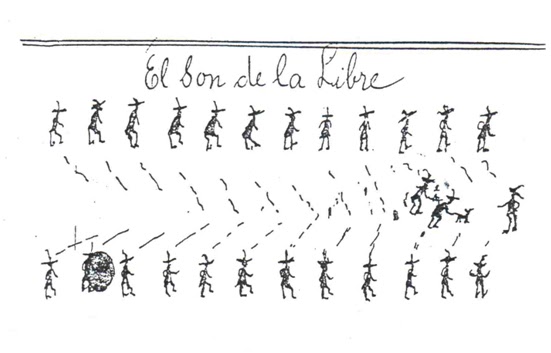 El Son de la Libre